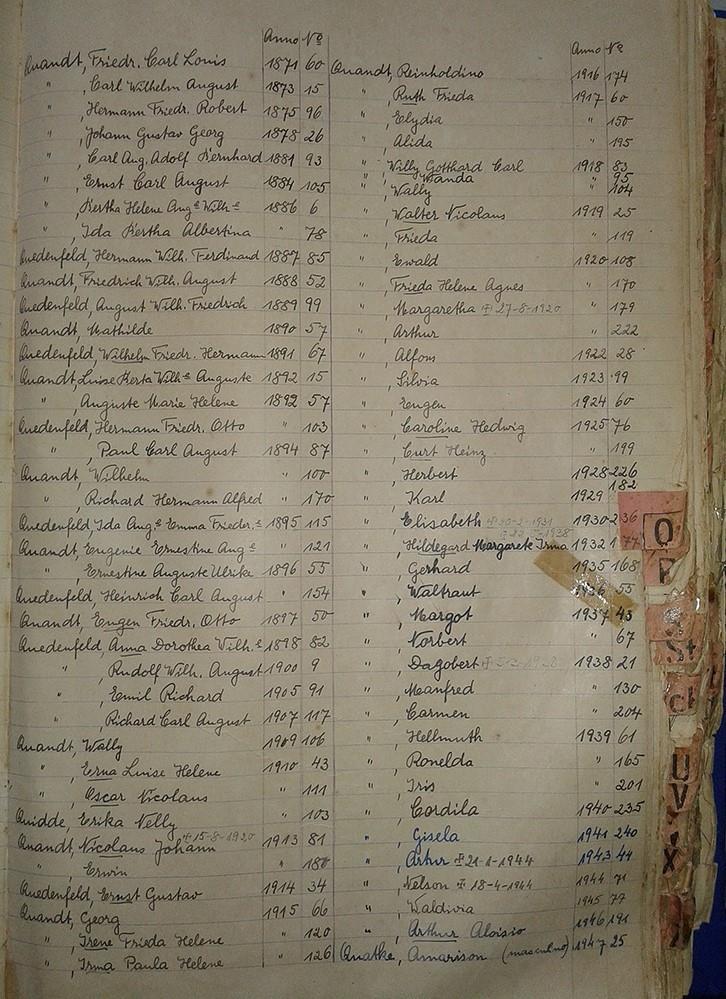 Anno Nº
Quandt, Friedr. Carl Louis 1871 60
" , Carl Wilhelm August 1873 15
" , Hermann Friedr. Robert 1875 96
" , Johann Gustav Georg 1878 26
" , Carl Aug. Adolf Bernhard 1881 93
" , Ernst Carl August 1884 105
" , Bertha Helene Augᵉ Wilhᵉ 1886 6
" , Ida Bertha Albertina " 78
Quedenfeld, Hermann Wilh. Ferdinand 1887 85
Quandt, Friedrich Wilh. August 1888 52
Quedenfeld, August Wilh. Friedrich 1889 99
Quandt, Mathilde 1890 57
Quedenfeld, Wilhelm Friedr. Hermann 1891 67
Quandt, Luise Berta Wilhᵉ Auguste 1892 15
" , Auguste Marie Helene 1892 57
Quedenfeld, Hermann Friedr. Otto " 103
" , Paul Carl August 1894 87
Quandt, Wilhelm " 100
" , Richard Hermann Alfred " 170
Quedenfeld, Ida Augᵉ Emma Frieder.ᵉ 1895 115
Quandt, Eugenie Ernestine Augᵉ " 121
" , Ernestine Auguste Ulrike 1896 55
Quedenfeld, Heinrich Carl August " 154
Quandt, Eugen Friedr. Otto 1897 50
Quedenfeld, Anna Dorothea Wilh.ᵉ 1898 82
" , Rudolf Wilh. August 1900 9
" , Emil Richard 1905 91
" , Richard Carl August 1907 117
Quandt, Wally 1909 106
" , Erna Luise Helene 1910 43
" , Oscar Nicolaus " 111
Quidde, Erika Nelly " 103
Quandt, Nicolaus Johann ✝15-8-1920 1913 81
" , Erwin " 180
Quedenfeld, Ernst Gustav 1914 34
Quandt, Georg 1915 66
" , Irene Frieda Helene " 120
" , Irma Paula Helene " 126
Anno Nº
Quandt, Reinholdino 1916 174
" , Ruth Frieda 1917 60
" , Elydia " 150
" , Alida " 195
" , Willy Gotthard Carl 1918 83
" , Wanda " 95
" , Wally " 104
" , Walter Nicolaus 1919 25
" , Frieda " 119
" , Ewald 1920 108
" , Frieda Helene Agnes " 170
" , Margaretha ✝ 27-8-1920 " 179
" , Arthur " 222
" , Alfons 1922 28
" , Silvia 1923 99
" , Eugen 1924 60
" , Caroline Hedwig 1925 76
" , Curt Heinz " 199
" , Herbert 1928 226
" , Karl 1929 182
" , Elisabeth 1930 236
" , Hildegard Margarete Irma 1932 177
" , Gerhard 1935 168
" , Waltraut 1936 55
" , Margot 1937 45
" , Norbert " 67
" , Dagobert 1938 21
" , Manfred " 130
" , Carmen " 204
" , Hellmuth 1939 61
" , Ronelda " 165
" , Iris " 201
" , Cordila 1940 235
" , Gisela 1941 240
" , Artur ✝ 21-1-1944 1943 44
" , Nelson ✝ 18-4-1944 1944 71
" , Waldivia 1945 77
" , Arthur Aloisio 1946 191
Quatke, Amarison (masculino) 1947 25
O
P
St
U
V
X